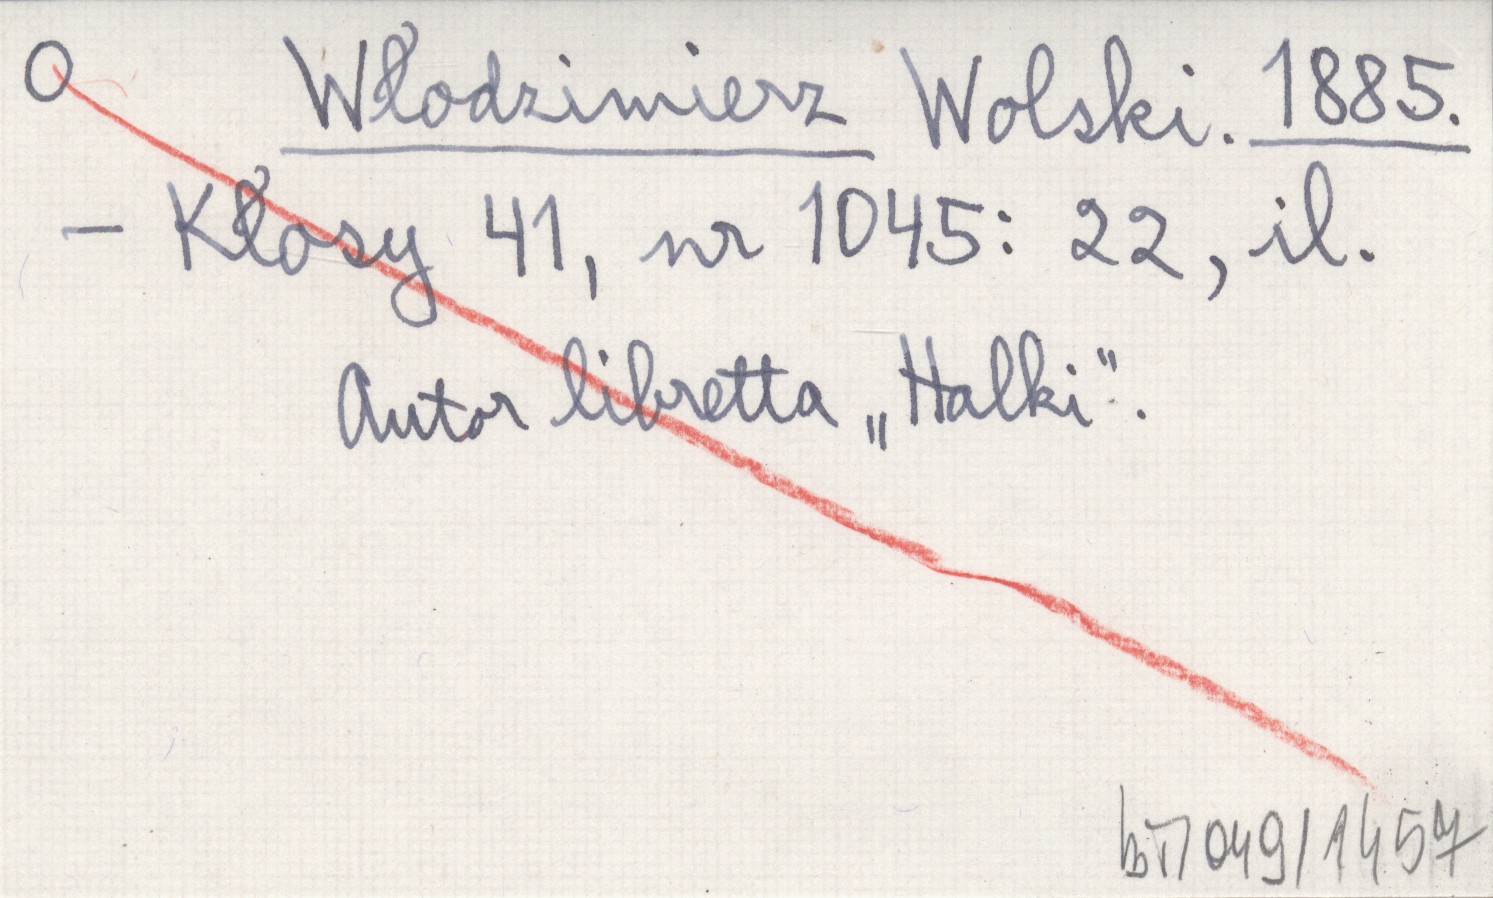 O Włodzimierz Wolski. 1885.
– Kłosy 41, nr 1045: 22, il.
Autor libretta „Halki".
bT/049/1457